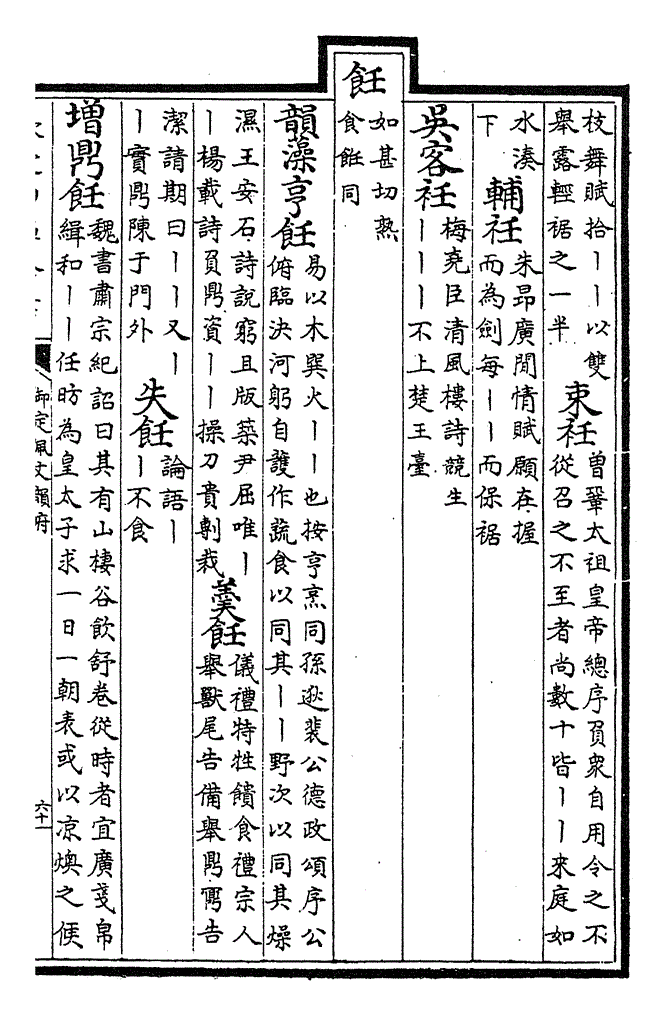 枝舞賦拾丨丨以雙
舉露輕裾之一半
束衽
曾鞏太祖皇帝總序負衆自用令之不
從召之不至者尚數十皆丨丨来庭如
水湊
下
輔衽
朱昂廣閒情賦願在握
而為劍每丨丨而保裾
吳客衽
梅堯臣清風樓詩競生
丨丨丨不上楚王臺
飪
如甚切熟
食餁同
韻藻亨飪
易以木巽火丨丨也按亨烹同孫逖裴公德政頌序公
俯臨決河躬自護作蔬食以同其丨丨野次以同其燥
濕王安石詩說窮且版築尹屈唯丨
丨楊載詩負鼎資丨丨操刀貴剸裁
羮飪
儀禮特牲饋食禮宗人
舉獸尾告備舉鼎鼏告
潔請期曰丨丨又丨
丨實鼎陳于門外
失飪
論語丨
丨不食
増鼎飪
魏書肅宗紀詔曰其有山棲谷飲舒卷從時者宜廣戔帛
緝和丨丨任昉為皇太子求一日一朝表或以凉燠之候
御定佩文韻府
六十一